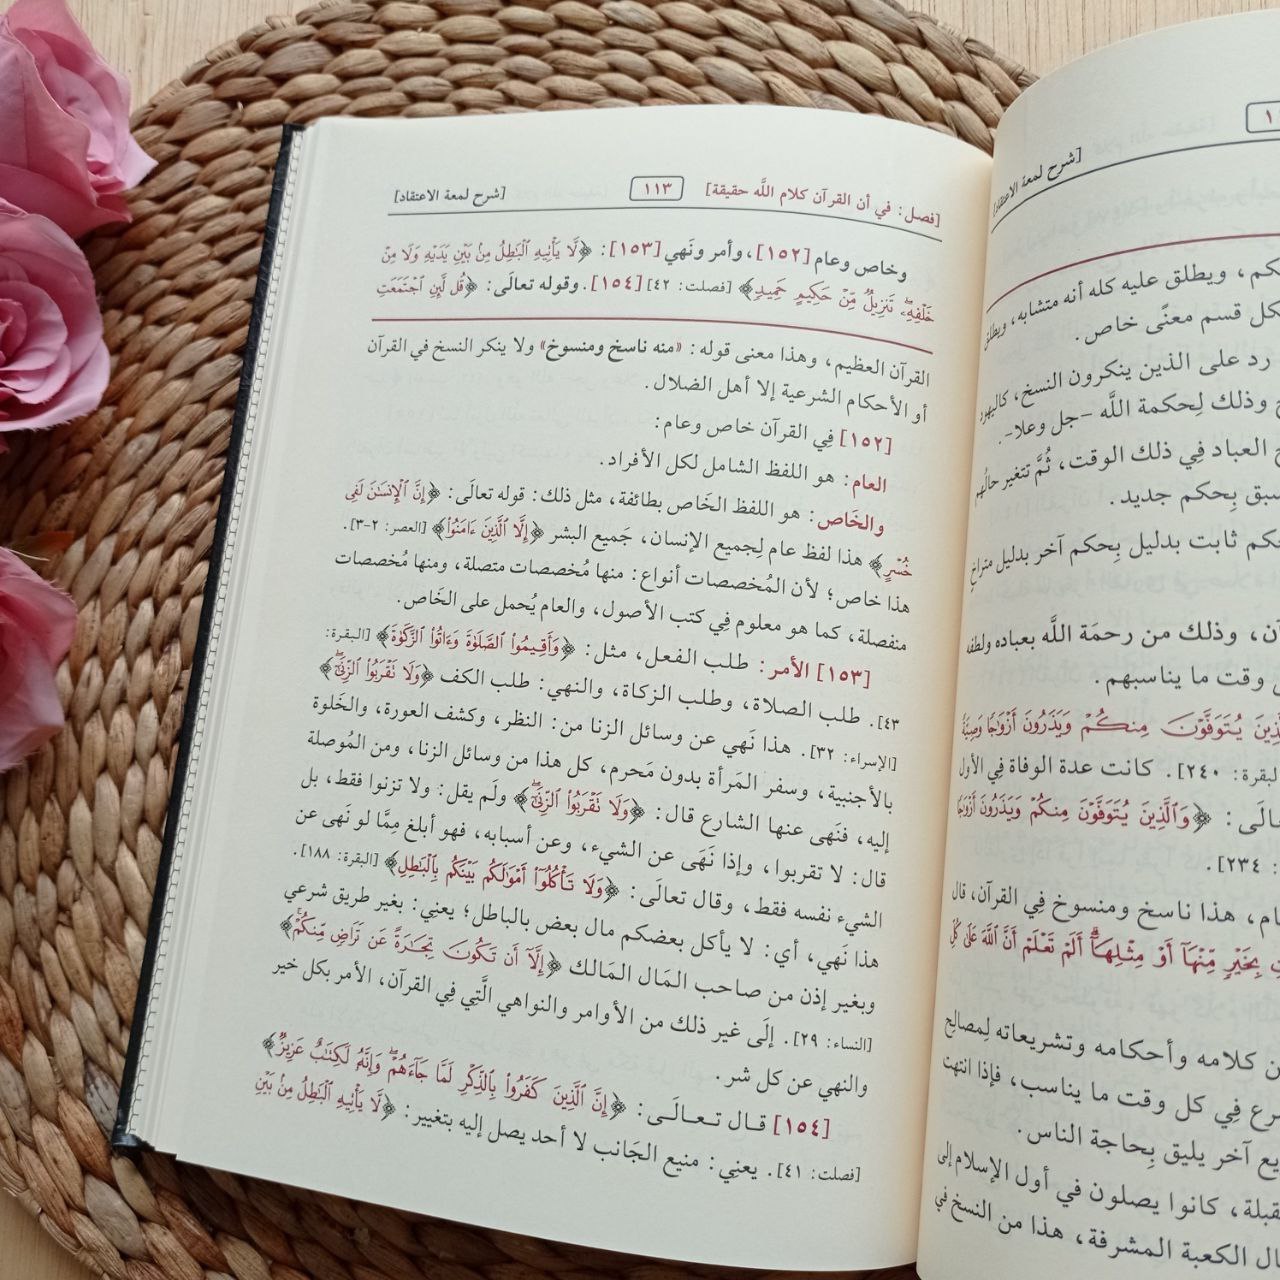 [فصل: في أن القرآن كلام اللَّه حقيقة] ١١٣ [شرح لمعة الاعتقاد]
وخاص وعام [١٥٢]، وأمر ونَهي [١٥٣]: ﴿لَّا يَأْتِيهِ الْبَاطِلُ مِنۢ بَيْنِ يَدَيْهِ وَلَا مِنْ
خَلْفِهِۦ تَنزِيلٌ مِّنْ حَكِيمٍ حَمِيدٍ﴾ [فصلت: ٤٢] [١٥٤]. وقوله تعالَى: ﴿قُل لَّئِنِ اجْتَمَعَتِ
القرآن العظيم، وهذا معنى قوله: «منه ناسخ ومنسوخ» ولا ينكر النسخ في القرآن
أو الأحكام الشرعية إلا أهل الضلال.
[١٥٢] فِي القرآن خاص وعام:
العام: هو اللفظ الشامل لكل الأفراد.
والخَاص: هو اللفظ الخَاص بطائفة، مثل ذلك: قوله تعالَى: ﴿إِنَّ الْإِنسَانَ لَفِي
خُسْرٍ﴾ هذا لفظ عام لِجميع الإنسان، جَميع البشر ﴿إِلَّا الَّذِينَ ءَامَنُوا﴾ [العصر: ٢-٣].
هذا خاص؛ لأن المُخصصات أنواع: منها مُخصصات متصلة، ومنها مُخصصات
منفصلة، كما هو معلوم فِي كتب الأصول، والعام يُحمل على الخَاص.
[١٥٣] الأمر: طلب الفعل، مثل: ﴿وَأَقِيمُوا الصَّلَوٰةَ وَءَاتُوا الزَّكَوٰةَ﴾ [البقرة:
٤٣]. طلب الصلاة، وطلب الزكاة، والنهي: طلب الكف ﴿وَلَا تَقْرَبُوا الزِّنَىٰ﴾
[الإسراء: ٣٢]. هذا نَهي عن وسائل الزنا من: النظر، وكشف العورة، والخَلوة
بالأجنبية، وسفر المَرأة بدون مَحرم، كل هذا من وسائل الزنا، ومن المُوصلة
إليه، فنَهى عنها الشارع قال: ﴿وَلَا تَقْرَبُوا الزِّنَىٰ﴾ ولَم يقل: ولا تزنوا فقط، بل
قال: لا تقربوا، وإذا نَهَى عن الشيء، وعن أسبابه، فهو أبلغ مِمَّا لو نَهَى عن
الشيء نفسه فقط، وقال تعالَى: ﴿وَلَا تَأْكُلُوا أَمْوَالَكُم بَيْنَكُم بِالْبَاطِلِ﴾ [البقرة: ١٨٨].
هذا نَهي، أي: لا يأكل بعضكم مال بعض بالباطل؛ يعني: بغير طريق شرعي
وبغير إذن من صاحب المَال المَالك ﴿إِلَّا أَن تَكُونَ تِجَارَةً عَن تَرَاضٍ مِّنكُمْ﴾
[النساء: ٢٩]. إلَى غير ذلك من الأوامر والنواهي الَّتِي فِي القرآن، الأمر بكل خير
والنهي عن كل شر.
[١٥٤] قال تعالَى: ﴿إِنَّ الَّذِينَ كَفَرُوا بِالذِّكْرِ لَمَّا جَاءَهُمْ وَإِنَّهُ لَكِتَابٌ عَزِيزٌ﴾
[فصلت: ٤١]. يعنِي: منيع الجَانب لا أحد يصل إليه بتغيير: ﴿لَّا يَأْتِيهِ الْبَاطِلُ مِنۢ بَيْنِ
[شرح لمعة الاعتقاد]
ويطلق عليه كله أنه متشابه، ويطلق
كل قسم معنًى خاص.
رد على الذين ينكرون النسخ، كاليهود
وذلك لِحكمة اللَّه -جل وعلا-.
العباد فِي ذلك الوقت، ثُمَّ تتغير حالُهم
سبق بِحكم جديد.
حكم ثابت بدليل بِحكم آخر بدليل متراخٍ
وذلك من رحمَة اللَّه بعباده ولطفه
وقت ما يناسبهم.
يُتَوَفَّوْنَ مِنكُمْ وَيَذَرُونَ أَزْوَاجًا وَصِيَّةً
البقرة: ٢٤٠]. كانت عدة الوفاة فِي الأول
﴿وَالَّذِينَ يُتَوَفَّوْنَ مِنكُمْ وَيَذَرُونَ أَزْوَاجًا
: ٢٣٤].
هذا ناسخ ومنسوخ فِي القرآن، قال
بِخَيْرٍ مِّنْهَا أَوْ مِثْلِهَا أَلَمْ تَعْلَمْ أَنَّ اللَّهَ عَلَىٰ كُلِّ
كلامه وأحكامه وتشريعاته لِمصالِح
فِي كل وقت ما يناسب، فإذا انتهت
آخر يليق بِحاجة الناس.
كانوا يصلون في أول الإسلام إلى
الكعبة المشرفة، هذا من النسخ في